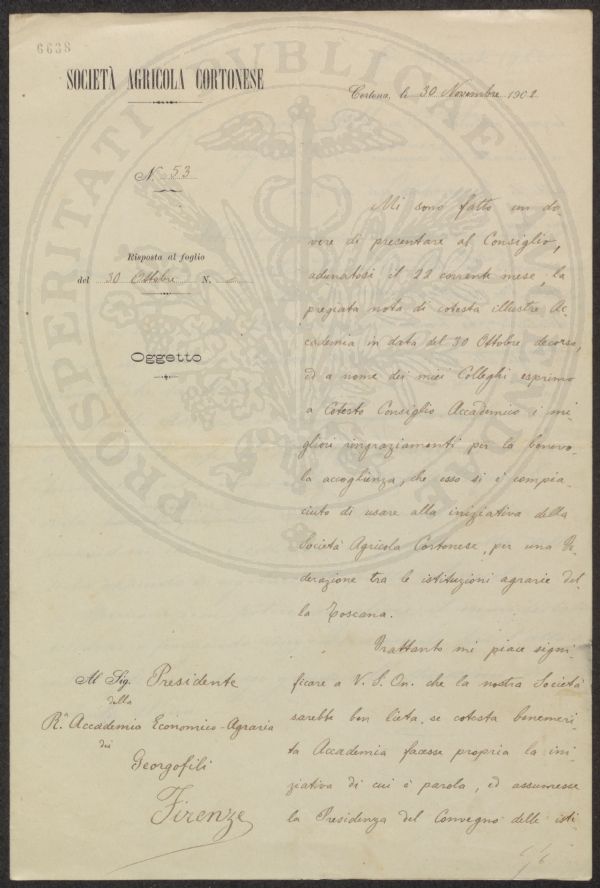 6638
SOCIETÀ AGRICOLA CORTONESE
Cortona, li 30 Novembre 1902
N. 53
Risposta al foglio
del 30 Ottobre N.
Oggetto
Mi sono fatto un do-
vere di presentare al Consiglio,
adunatosi il 22 corrente mese, la
pregiata nota di cotesta illustre Ac-
cademia in data del 30 Ottobre decorso,
ed a nome dei miei Colleghi esprimo
a Cotesto Consiglio Accademico i mi-
gliori ringraziamenti per la benevo-
la accoglienza, che esso si è compia-
ciuto di usare alla iniziativa della
Società Agricola Cortonese, per una Fe-
derazione tra le istituzioni agrarie del-
la Toscana.
Frattanto mi piace signi-
ficare a V. S. On. che la nostra Società
sarebbe ben lieta, se cotesta benemeri-
ta Accademia facesse propria la ini-
ziativa di cui è parola, ed assumesse
la Presidenza del Convegno delle isti-
Al Sig. Presidente
della
R.ª Accademia Economico-Agraria
dei
Georgofili
Firenze
PROSPERITATI PUBLICAE AUGENDAE